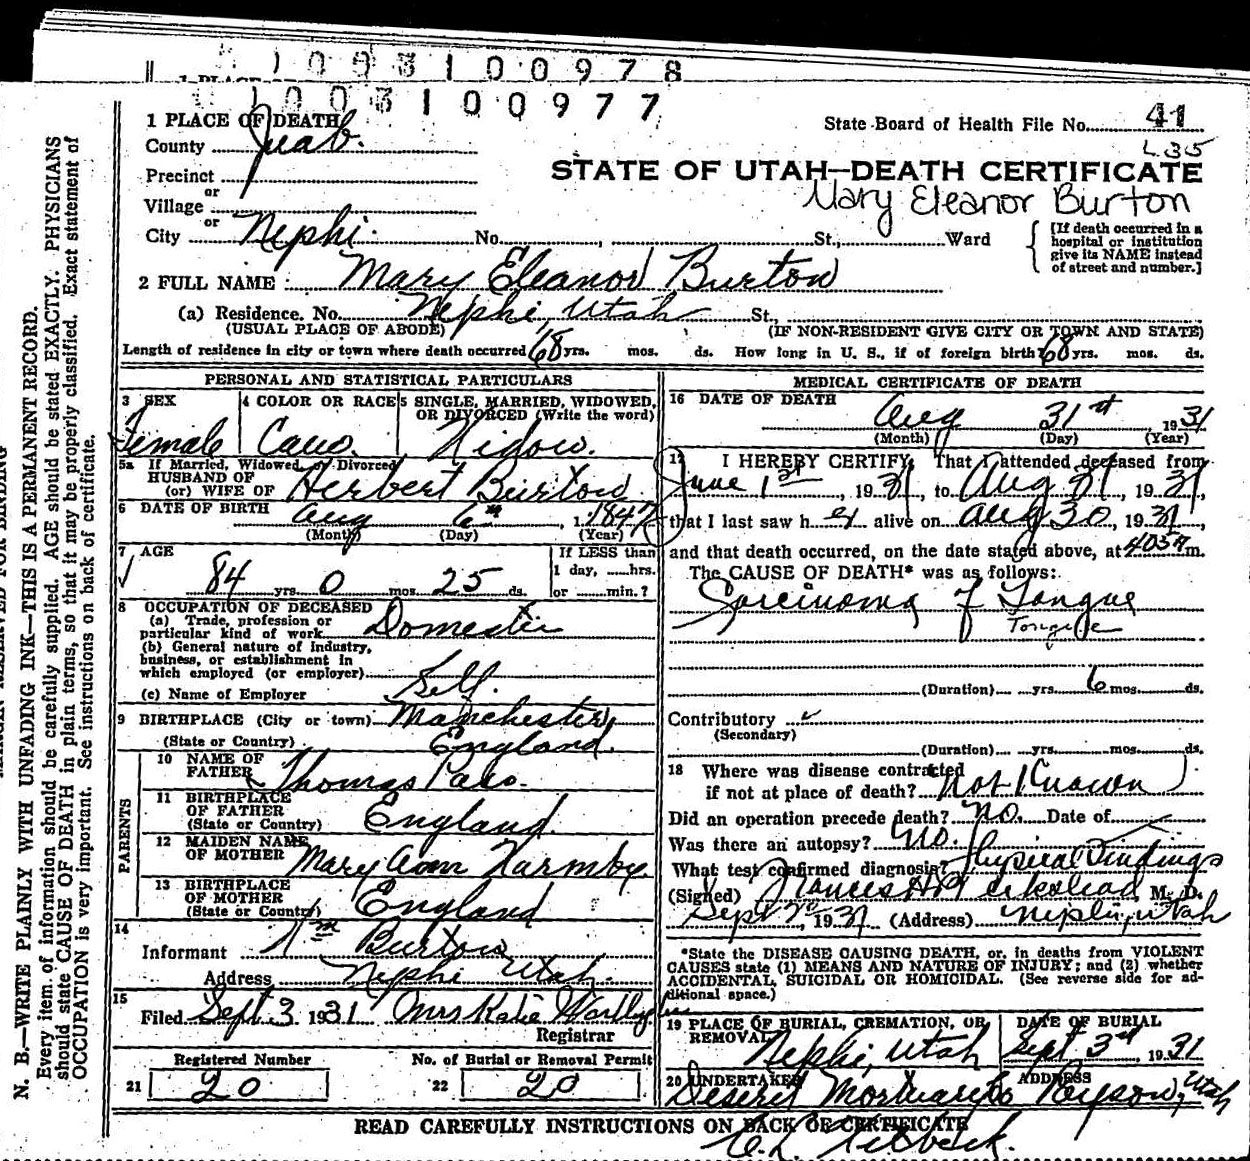 1 0 0 3 1 0 0 9 7 8
1 PLACE
1 0 0 3 1 0 0 9 7 7
1 PLACE OF DEATH
State Board of Health File No. 41
County Juab.
L 35
Precinct
STATE OF UTAH—DEATH CERTIFICATE
or
Village
Mary Eleanor Burton
or
City Nephi. No. , St., Ward
[If death occurred in a
hospital or institution
give its NAME instead
of street and number.]
2 FULL NAME Mary Eleanor Burton
(a) Residence. No. Nephi, Utah St.,
(USUAL PLACE OF ABODE) (IF NON-RESIDENT GIVE CITY OR TOWN AND STATE)
Length of residence in city or town where death occurred 68 yrs. mos. ds. How long in U. S., if of foreign birth? 68 yrs. mos. ds.
PERSONAL AND STATISTICAL PARTICULARS
3 SEX
Female
4 COLOR OR RACE
Cauc.
5 SINGLE, MARRIED, WIDOWED,
OR DIVORCED (Write the word)
Widow.
5a If Married, Widowed, or Divorced
HUSBAND OF
(or) WIFE OF Herbert Burton
6 DATE OF BIRTH Aug 6th, 1 1847
(Month) (Day) (Year)
7 AGE
84 yrs. 0 mos. 25 ds.
If LESS than
1 day, ......hrs.
or ......min.?
8 OCCUPATION OF DECEASED
(a) Trade, profession or
particular kind of work Domestic
(b) General nature of industry,
business, or establishment in
which employed (or employer)
Self.
(c) Name of Employer
9 BIRTHPLACE (City or town) Manchester,
(State or Country) England.
PARENTS
10 NAME OF
FATHER Thomas
11 BIRTHPLACE
OF FATHER
(State or Country) England.
12 MAIDEN NAME
OF MOTHER Mary Ann
13 BIRTHPLACE
OF MOTHER
(State or Country) England
14
Informant Wm Burton
Address Nephi Utah.
15
Filed Sept. 3 1931 Mrs Katie
Registrar
Registered Number
21 20
No. of Burial or Removal Permit
22 20
MEDICAL CERTIFICATE OF DEATH
16 DATE OF DEATH
Aug 31st, 1931
(Month) (Day) (Year)
17 I HEREBY CERTIFY, That I attended deceased from
June 1st, 1931, to Aug 31, 1931,
that I last saw her alive on Aug 30, 1931,
and that death occurred, on the date stated above, at m.
The CAUSE OF DEATH* was as follows:
of Tongue
Tongue
(Duration) yrs. 6 mos. ds.
Contributory
(Secondary)
(Duration) yrs. mos. ds.
18 Where was disease contracted
if not at place of death? Not Known
Did an operation precede death? no. Date of
Was there an autopsy? no.
What test confirmed diagnosis? Physical Findings
(Signed) M. D.
Sept 2nd, 1931 (Address) Nephi, Utah
*State the DISEASE CAUSING DEATH, or, in deaths from VIOLENT
CAUSES state (1) MEANS AND NATURE OF INJURY; and (2) whether
ACCIDENTAL, SUICIDAL OR HOMICIDAL. (See reverse side for ad-
ditional space.)
19 PLACE OF BURIAL, CREMATION, OR
REMOVAL
Nephi, Utah
DATE OF BURIAL
Sept 3rd, 1931
20 UNDERTAKER
Deseret Mortuary Co
ADDRESS
Payson, Utah
READ CAREFULLY INSTRUCTIONS ON BACK OF CERTIFICATE
N. B.—WRITE PLAINLY WITH UNFADING INK—THIS IS A PERMANENT RECORD.
Every item of information should be carefully supplied. AGE should be stated EXACTLY. PHYSICIANS
should state CAUSE OF DEATH in plain terms, so that it may be properly classified. Exact statement of
OCCUPATION is very important. See instructions on back of certificate.